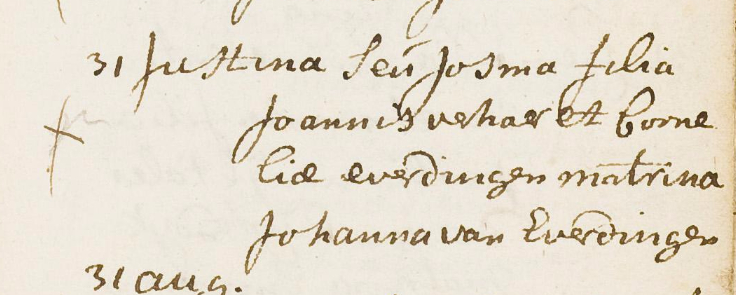 31 Justina seu Josina filia
Joannis verhaer et Corne
liæ everdingen matrina
Johanna van Everdingen
31 aug.